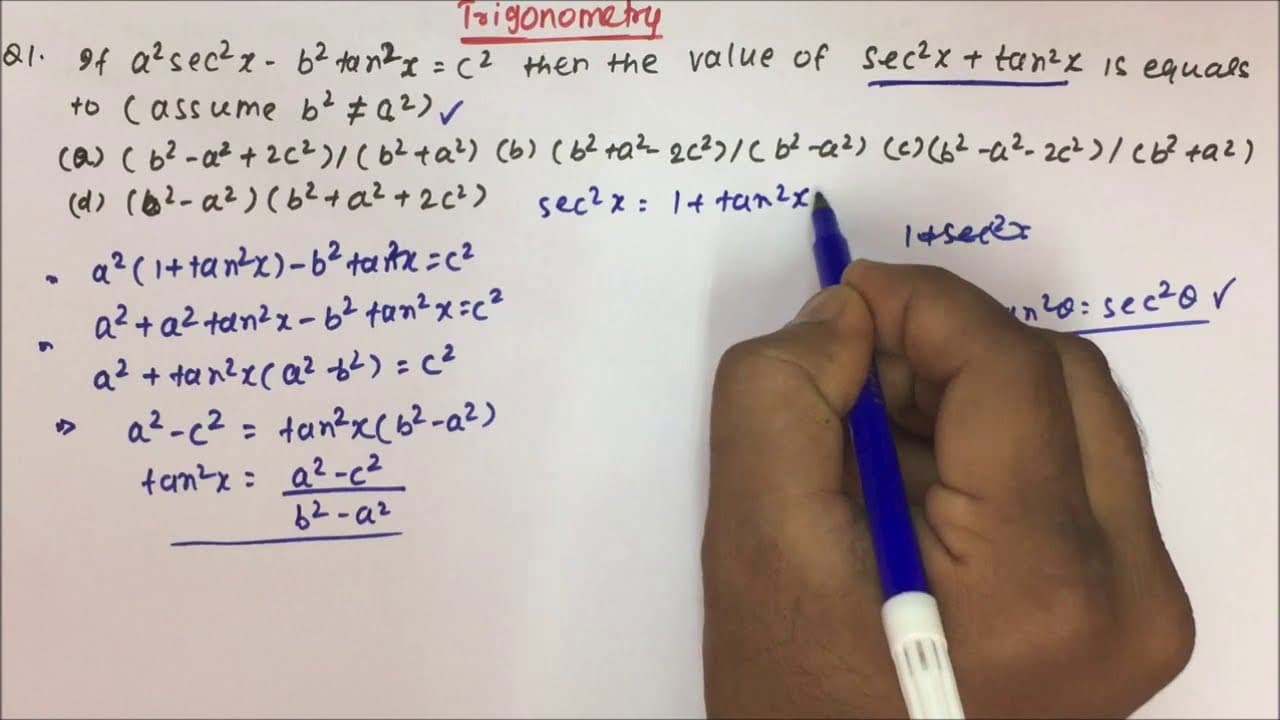 Trigonometry
Q1. If a²sec²x - b²tan²x = c² then the value of sec²x + tan²x is equals
to (assume b² ≠ a²) ✓
(a) (b² - a² + 2c²)/(b² + a²) (b) (b² + a² - 2c²)/(b² - a²) (c) (b² - a² - 2c²)/(b² + a²)
(d) (b² - a²)(b² + a² + 2c²)
sec²x = 1 + tan²x
1+sec²x
a²(1+tan²x) - b²tan²x = c²
n²θ = sec²θ ✓
a² + a²tan²x - b²tan²x = c²
a² + tan²x(a² - b²) = c²
⇒ a² - c² = tan²x(b² - a²)
tan²x = a² - c²
b² - a²